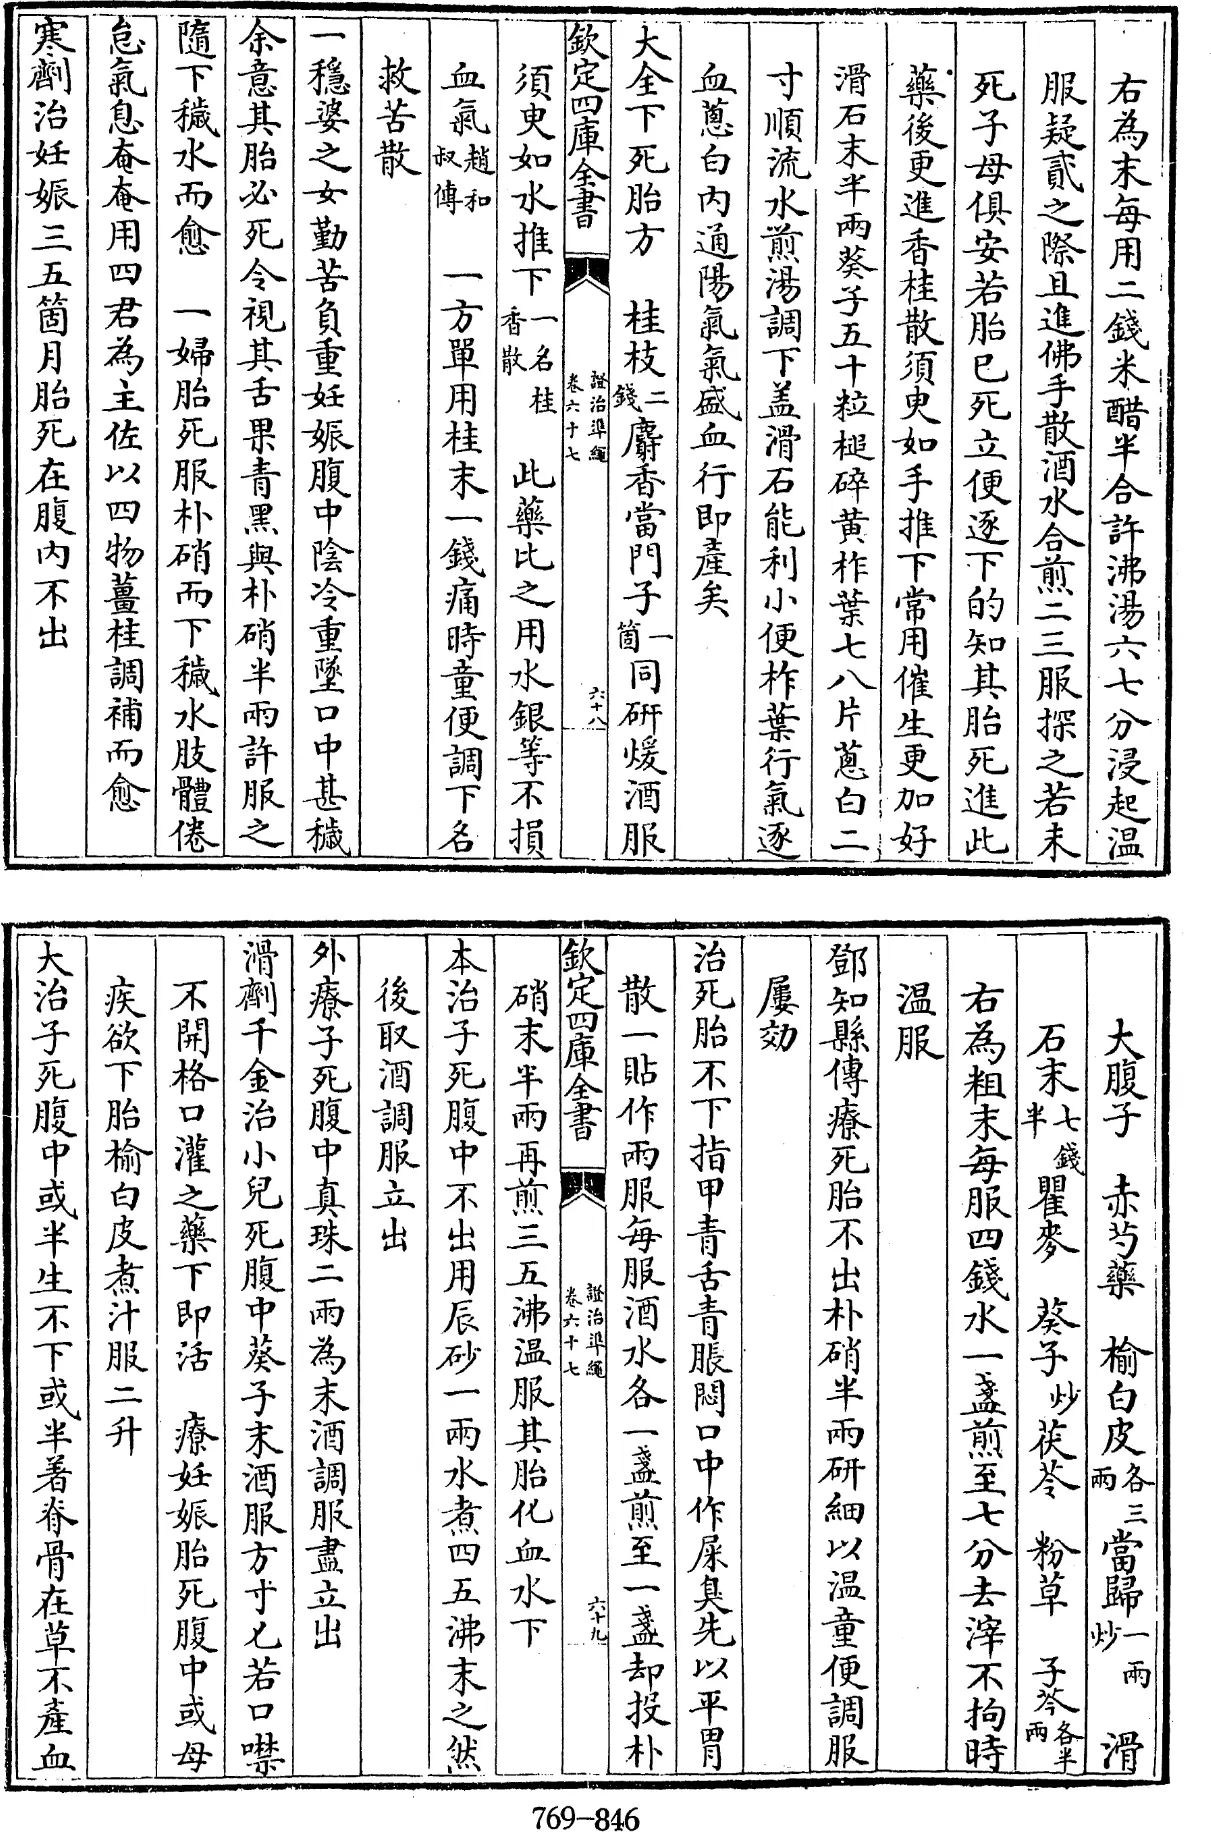 右為末每用二錢米醋半合許沸湯六七分浸起温
服疑貳之際且進佛手散酒水合煎二三服探之若未
死子母俱安若胎已死立便逐下的知其胎死進此
藥後更進香桂散須臾如手推下常用催生更加好
滑石末半兩葵子五十粒槌碎黄柞葉七八片蔥白二
寸順流水煎湯調下盖滑石能利小便柞葉行氣逐
血蔥白内通陽氣氣盛血行即產矣
大全下死胎方　桂枝二錢麝香當門子一箇同研煖酒服
欽定四庫全書　證治準繩卷六十七　六十八
須臾如水推下一名桂香散　此藥比之用水銀等不損
血氣趙和叔傳　一方單用桂末一錢痛時童便調下名
救苦散
一穩婆之女勤苦負重妊娠腹中陰冷重墜口中甚穢
余意其胎必死令視其舌果青黑與朴硝半兩許服之
隨下穢水而愈　一婦胎死服朴硝而下穢水肢體倦
怠氣息奄奄用四君為主佐以四物薑桂調補而愈
寒劑治妊娠三五箇月胎死在腹内不出
大腹子　赤芍藥　榆白皮各三兩當歸一兩炒　滑
石末七錢半瞿麥　葵子炒茯苓　粉草　子芩各半兩
右為粗末每服四錢水一盞煎至七分去滓不拘時
温服
鄧知縣傳療死胎不出朴硝半兩研細以温童便調服
屢効
治死胎不下指甲青舌青脹悶口中作屎臭先以平胃
散一貼作兩服每服酒水各一盞煎至一盞却投朴
欽定四庫全書　證治準繩卷六十七　六十九
硝末半兩再煎三五沸温服其胎化血水下
本治子死腹中不出用辰砂一兩水煮四五沸末之然
後取酒調服立出
外療子死腹中真珠二兩為末酒調服盡立出
滑劑千金治小兒死腹中葵子末酒服方寸匕若口噤
不開格口灌之藥下即活　療妊娠胎死腹中或母
疾欲下胎榆白皮煮汁服二升
大治子死腹中或半生不下或半著脊骨在草不產血
769-846